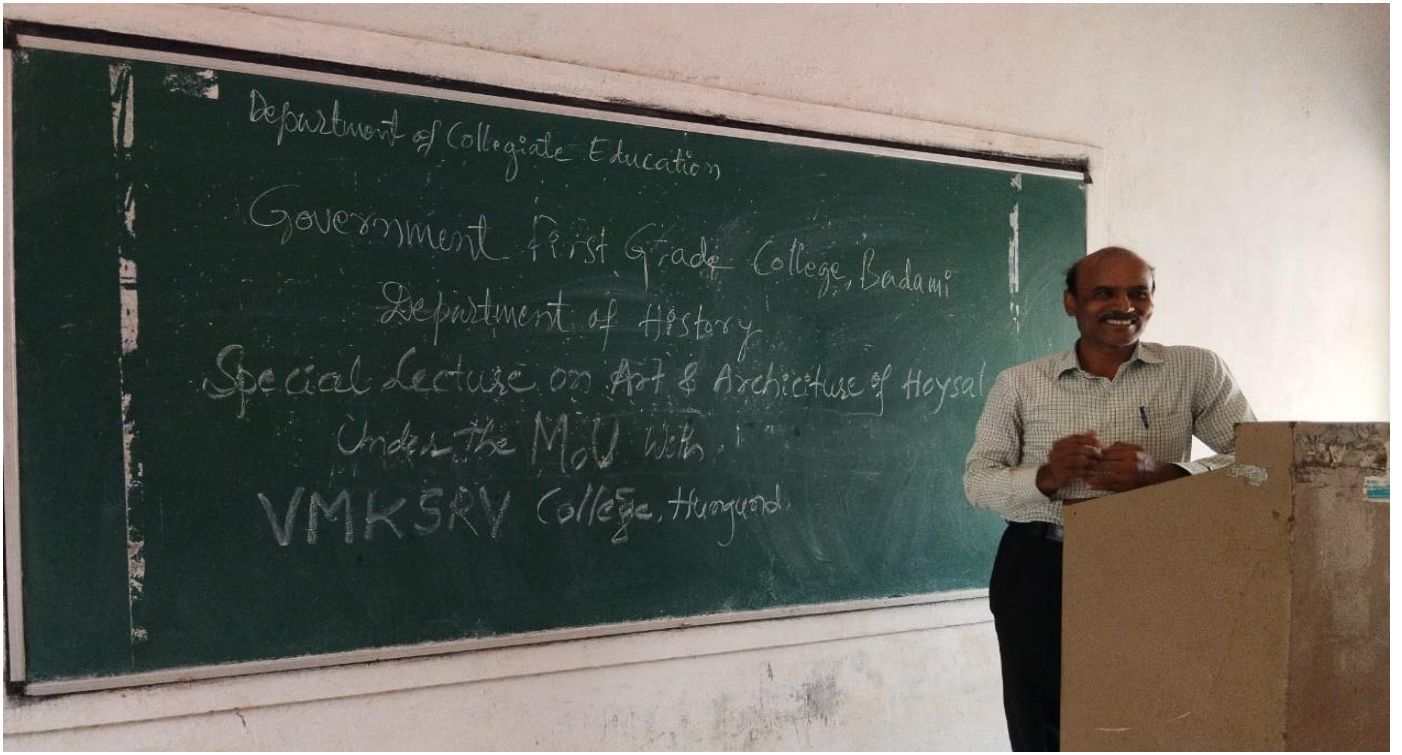 Department of Collegiate Education
Government First Grade College, Badami
Department of History
Special Lecture on Art & Archiciture of Hoysal
Under the MoU With
VMKSRV College, Hungund.